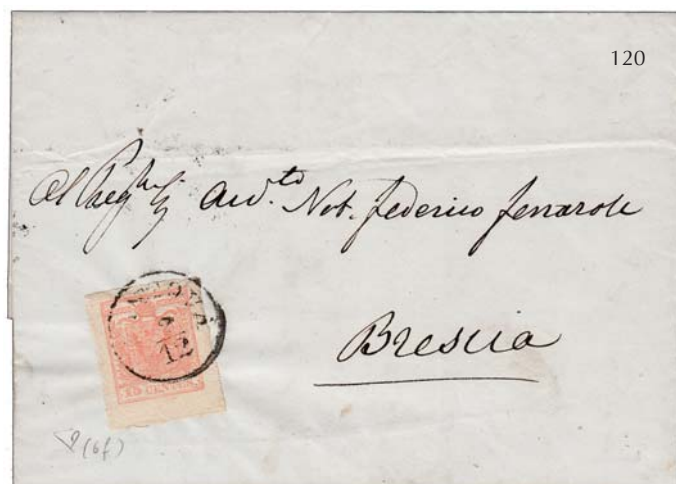 120
Al Preg. Avv.to Nob. Federico Fenaroli
Brescia
12
15 CENTES
(6f)